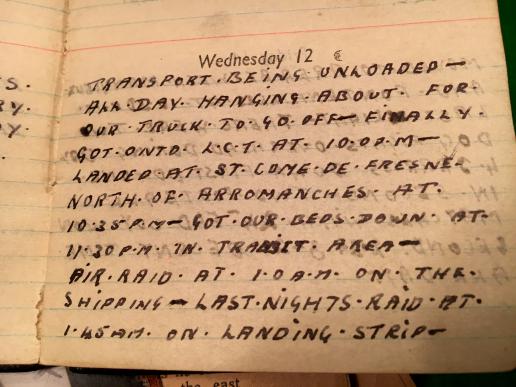 Wednesday 12
TRANSPORT·BEING UNLOADED—
ALL·DAY·HANGING·ABOUT·FOR·
OUR·TRUCK·TO·GO·OFF—FINALLY·
GOT·ONTO·L·C·T·AT·10·0P·M—
LANDED·AT·ST·COME·DE·FRESNE·
NORTH·OF·ARROMANCHES·AT·
10·35P·M—GOT·OUR·BEDS·DOWN·AT·
11·30P·M·IN·TRANSIT·AREA—
AIR·RAID·AT·1·0A·M·ON·THE·
SHIPPING—LAST·NIGHTS·RAID·AT·
1·45AM·ON·LANDING·STRIP—
S·
RY·
AY
the east